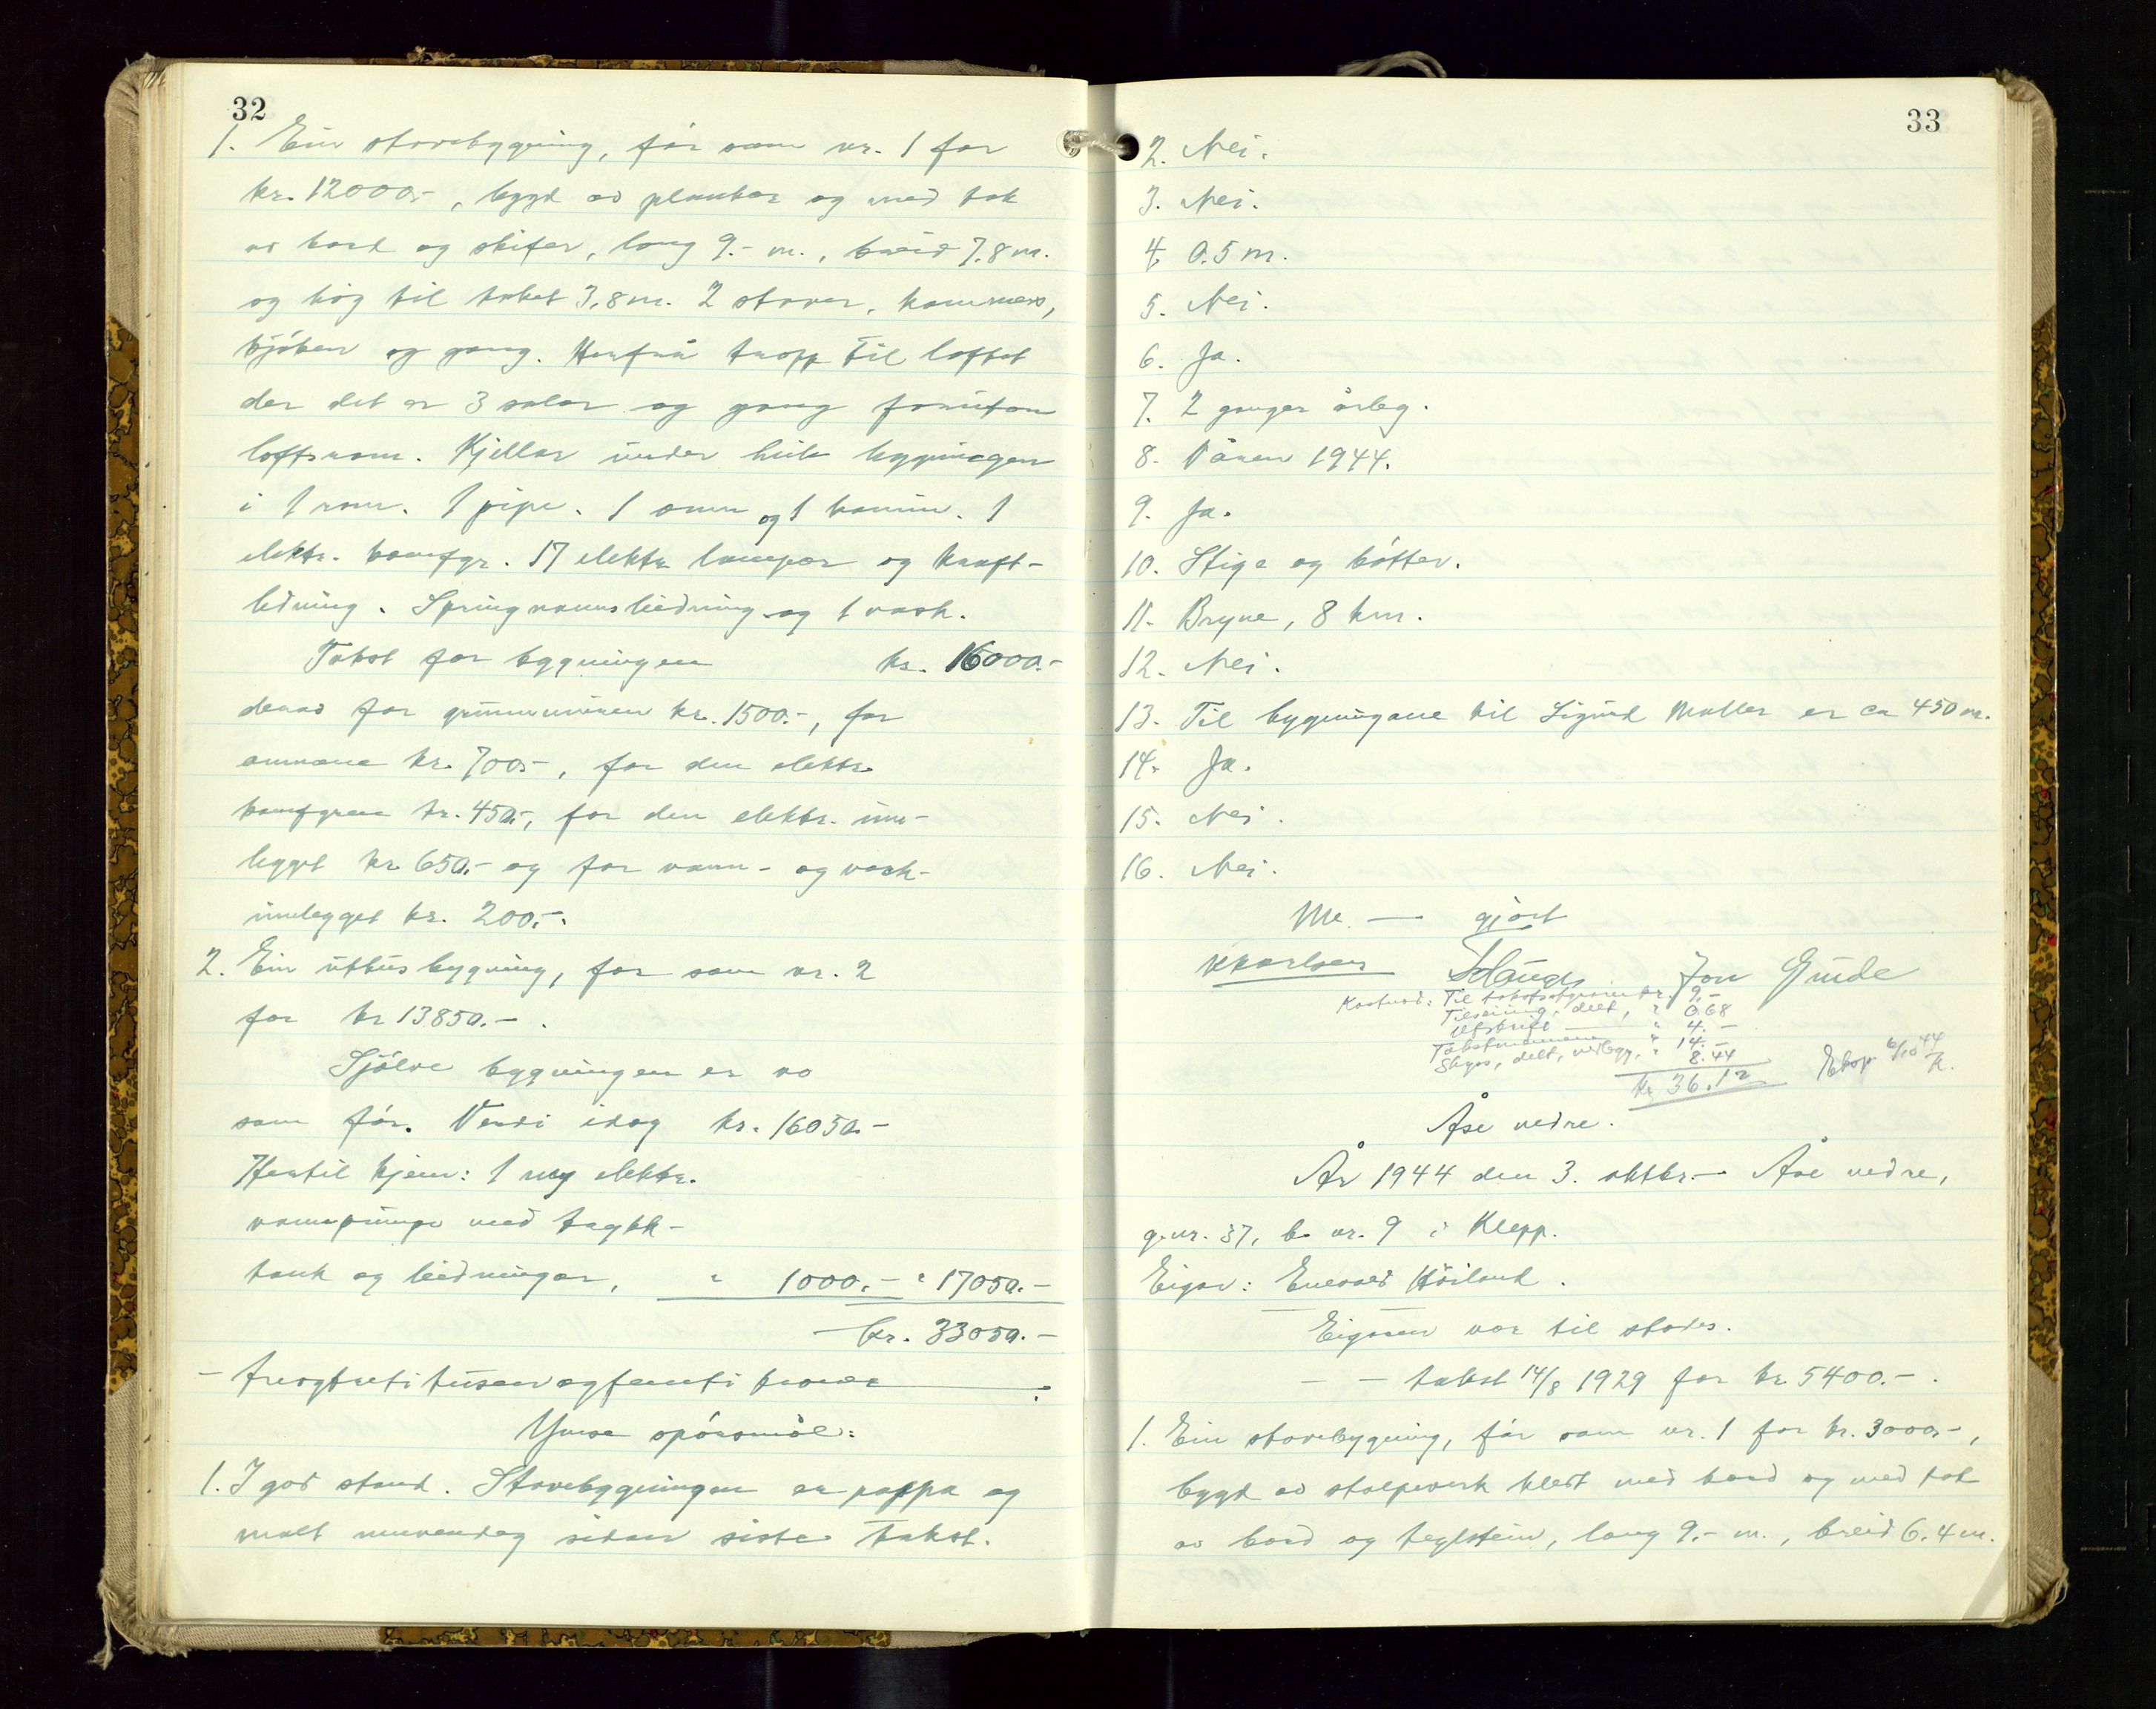 32
1. Ein stovebygning, før som nr. 1 for
kr. 12000.-, bygd av plankar og med tak
av bord og skifer, lang 9.- m., breid 7.8 m.
og høg til taket 3.8 m. 2 stover, kammers,
kjøken og gang. Herfrå tropp til loftet
der det er 3 salar og gang forutan
loftsrom. Kjellar under heile bygningen
i 1 rom. 1 pipe. 1 omn og 1 kamin. 1
elektr. komfyr. 17 elektr. lamper og kraft-
ledning. Springvannsleidning og 1 vask.
Takst for bygningen kr. 16000.-
derav for grunnmuren kr. 1500.-, for
omnane kr. 700.-, for den elektr.
komfyren kr. 450.-, for den elektr. inn-
legget kr. 650.- og for vann- og vask-
innlegget kr. 200.-.
2. Ein uthusbygning, før som nr. 2
for kr 13850.-.
Sjølve bygningen er no
som før. Verdi idag kr. 16050.-
Hertil kjem: 1 ny elektr.
vannpumpe med trykk-
tank og leidningar, " 1000.- " 17050.-
kr. 33050.-
- treogtretitusenogfemti kroner.
Ymse spørsmål:
1. I god stand. Stovebygningen er pappa og
malt utvendeg sidan siste takst.
33
2. Nei.
3. Nei.
4. 0.5 m.
5. Nei.
6. Ja.
7. 2 ganger årleg.
8. Våren 1944.
9. Ja.
10. Stige og bøtter.
11. Bryne, 8 km.
12. Nei.
13. Til bygningane til Sigurd Møller er ca 450 m.
14. Ja.
15. Nei.
16. Nei.
Me — gjort
K Karlsen T Haugs Jon Grude
Kostnad: Til takstutgreiin kr. 9.-
Tilseiing, delt, " 0.68
Utskrift — " 4.-
Takstmennene " 14.-
Skyss, delt, vedlegg, " 8.44
kr 36.12
Eksp 6/10 44
K.
Åse nedre.
År 1944 den 3. oktbr.— Åse nedre,
g.nr. 37, b. nr. 9 i Klepp.
Eigar: Enevald Høiland.
Eigaren var til stades.
— — takst 14/8 1929 for kr 5400.-.
1. Ein stovebygning, før som nr. 1 for kr. 3000.-,
bygd av stolpeverk kledt med bord og med tak
av bord og teglstein, lang 9.- m., breid 6.4 m.